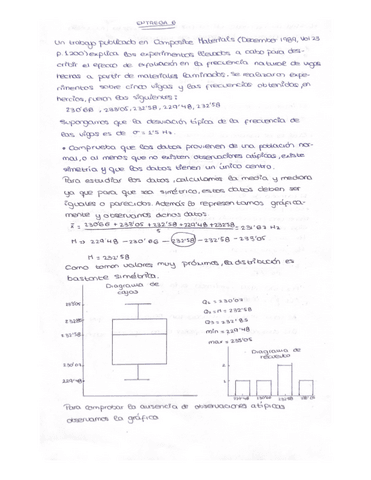 ENTREGA 8
Un trabajo publicado en Composite Materials (December 1989, Vol 23
p. 1200) explica los experimentos llevados a cabo para des-
cribir el efecto de en la frecuencia natural de vigas
hechas a partir de materiales laminados. Se realizaron expe-
rimentos sobre cinco vigas y las frecuencias obtenidas, en
hercios, fueron las siguientes:
230'66, 233'05, 232'58, 229'48, 232'58
Supongamos que la desviación típica de la frecuencia de
las vigas es de σ = 1'5 Hz.
• Comprueba que los datos provienen de una población nor-
mal, o al menos que no existen observaciones atípicas, existe
simetría y que los datos tienen un único centro.
Para estudiar los datos, calculamos la media y mediana
ya que para que sea simétrico, estos datos deben ser
iguales o parecidos. Además lo representamos gráfica-
mente y observamos dichos datos:
x̄ = 230'66 + 233'05 + 232'58 + 229'48 + 232'58 / 5 = 231'67 Hz
M → 229'48 - 230'66 - 232'58 - 232'58 - 233'05
M = 232'58
Como toman valores muy próximos, la distribución es
bastante simétrica.
Diagrama de
cajas
Q1 = 230'07
Q2 = M = 232'58
Q3 = 232'85
min = 229'48
max = 233'05
233'05
232'85
232'58
230'07
229'48
Diagrama de
recuento
2
1
229'48 230'66 232'58 233'05
Para comprobar la ausencia de observaciones atípicas
observamos la gráfica